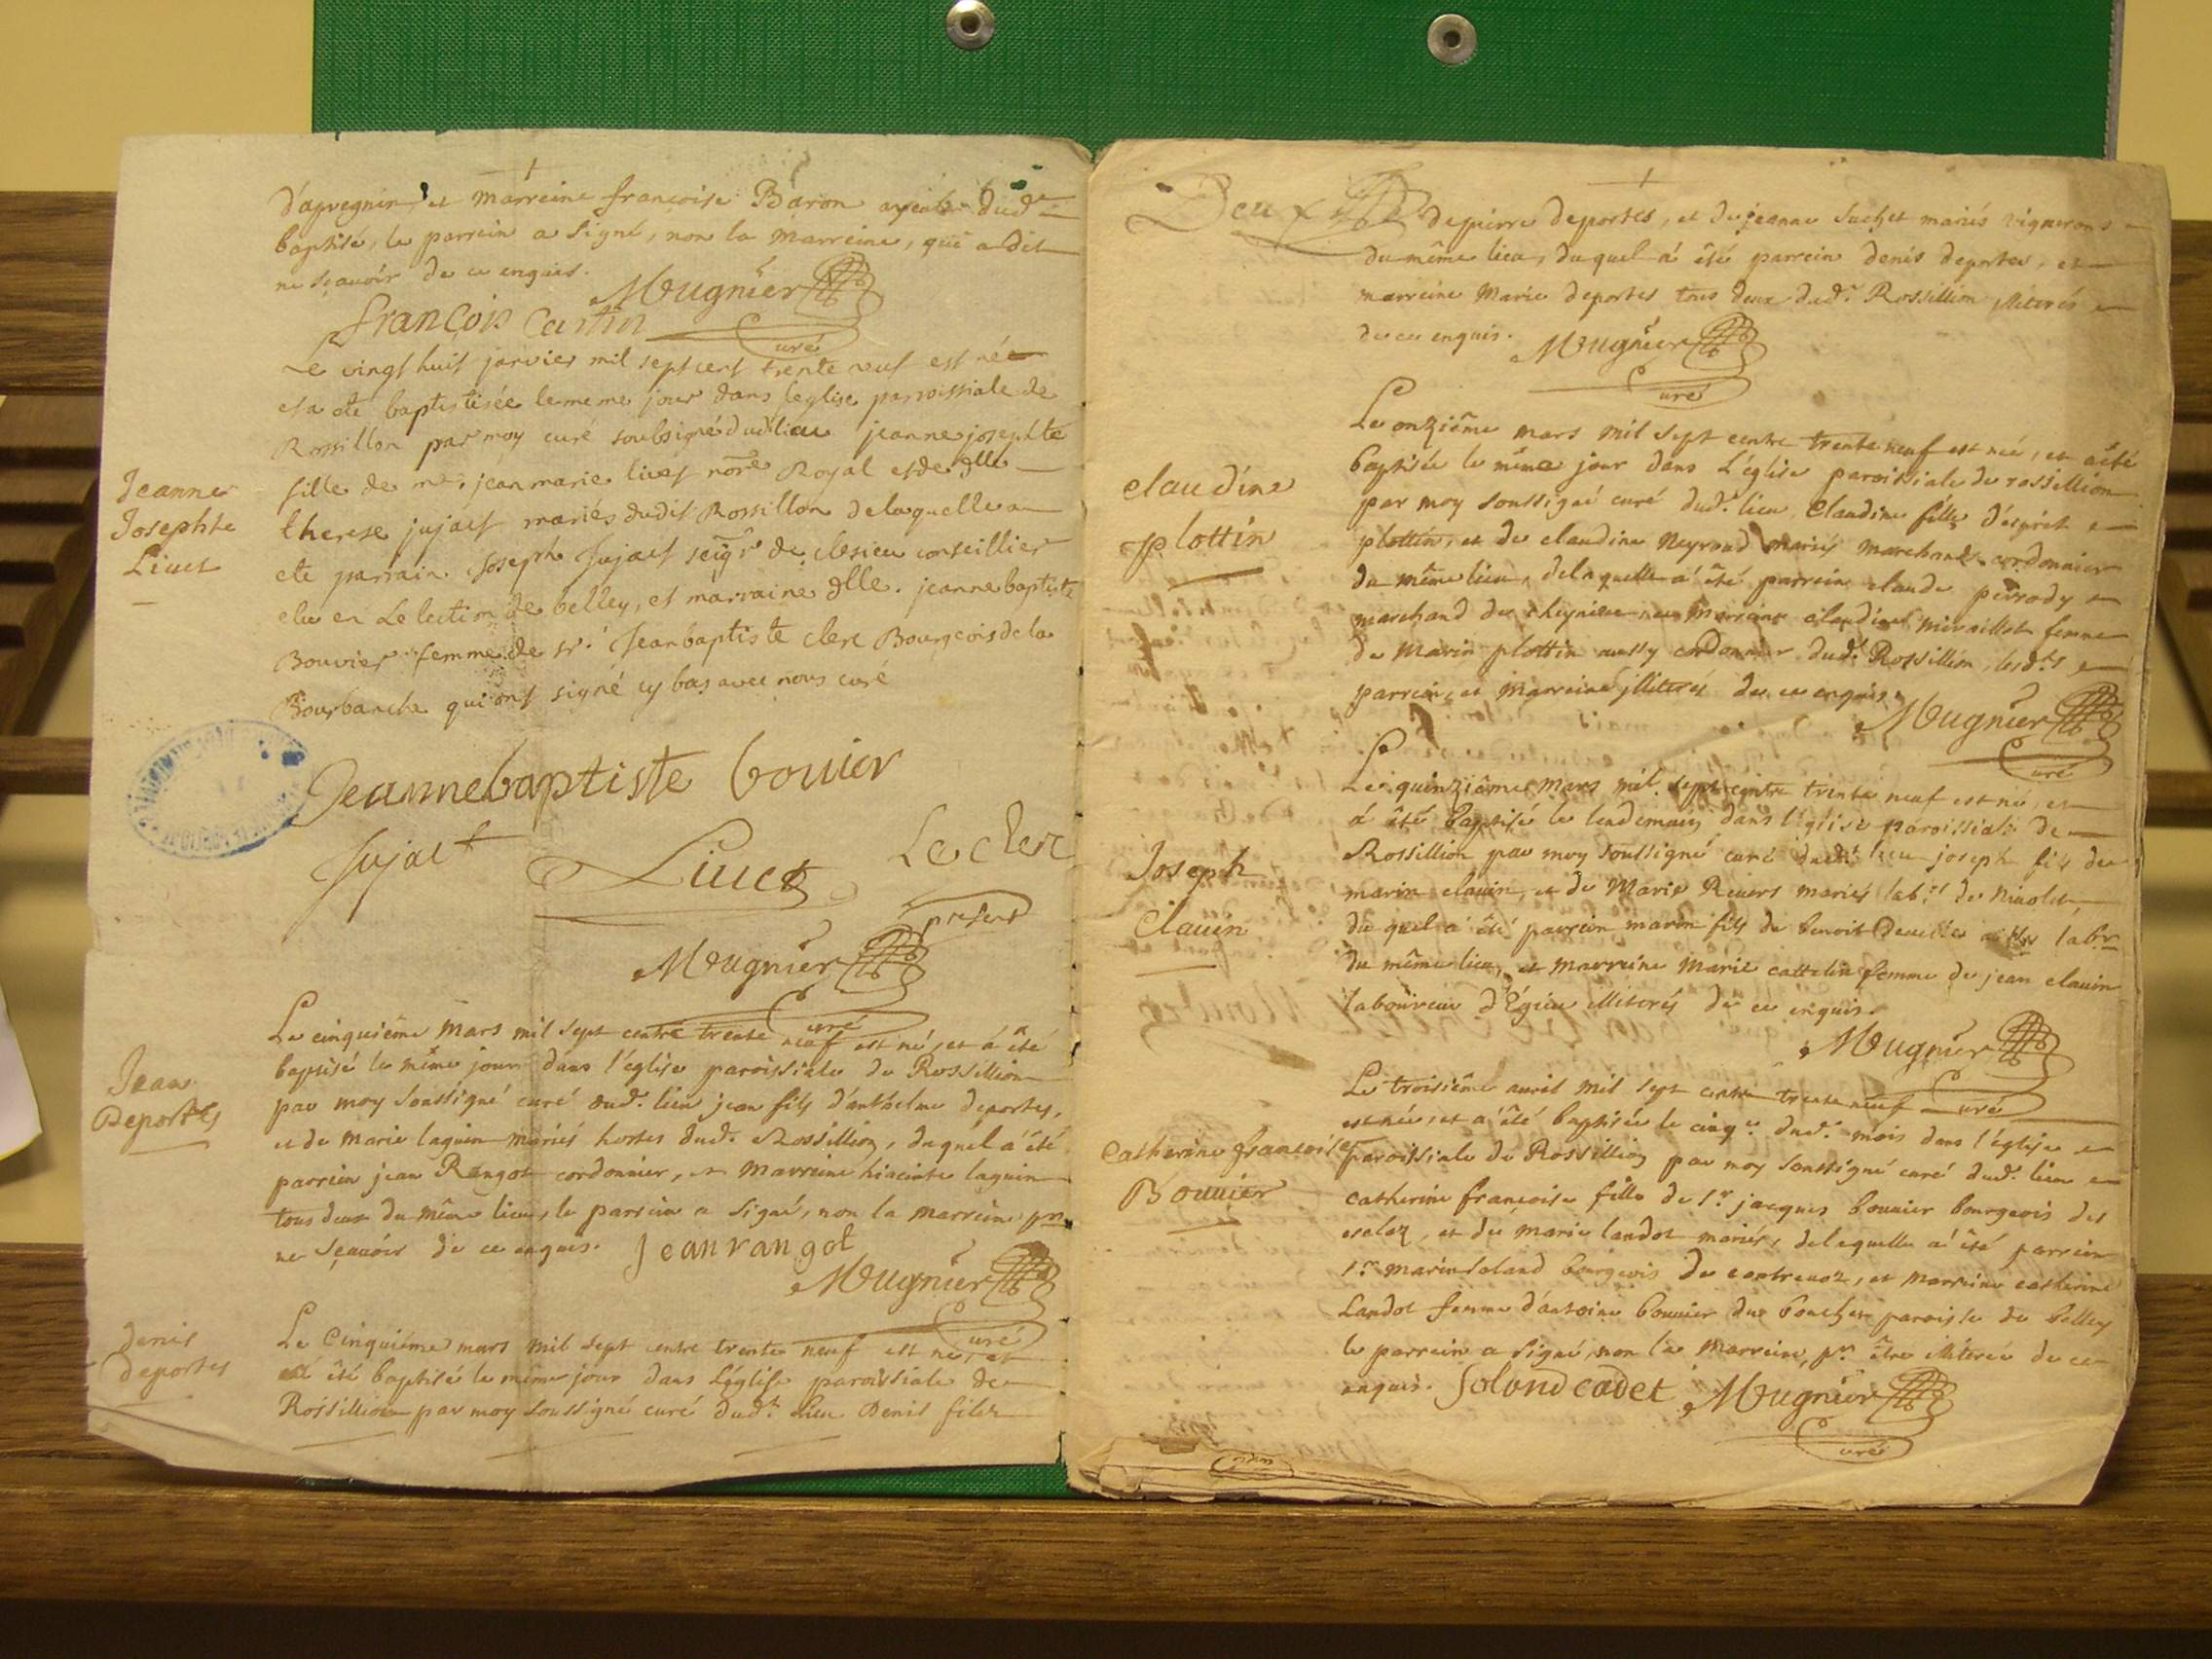 d'apregnin, et marreine francoise Baron ayeule dud.
baptisé, le parrein a signé, non la marreine, qui a dit
ne sçavoir de ce enquis.
Mugnier
curé
françois Castin
Le vingt huit janvier mil sept cent trente neuf est née
et a ete baptistisée le meme jour dans leglise parroissiale de
Rossillon par moy curé soubsigné dud lieu jeanne josephte
fille de me. jean marie livet nore Royal et de dlle
therese jujact mariés dudit Rossillon de laquelle a
ete parrain Joseph Jujact seigr de clesieu conseillier
elu en Lelection de belley, et marraine dlle. jeanne baptiste
Bouvier femme de sr. Jean baptiste clerc Bourgeois de la
Bourbanche qui ont signé cy bas avec nous curé
Jeanne
Josephte
Livet
Jeannebaptiste bouier
Jujact
Livet
Le clerc
present
Mugnier
curé
Le cinquiême mars mil sept centre trente neuf est né, et á été
baptisé le même jour dans l'église paroissiale de Rossillion
par moy soussigné curé dud. lieu jean fils d'anthelme deportes,
et de marie laguin mariés hostes dud. Rossillion, duquel a' êté
parrein jean Rangot cordonnier, et marreine hiacinte laguin
tous deux du même lieu, le parrein a signé, non la marreine pr.
ne sçavoir de ce enquis. Jean rangot
Mugnier
curé
Jean
Deportes
Le Cinquiéme mars mil sept centre trente neuf est né, et
á été baptisé le même jour dans L'église paroissiale de
Rossillion par moy soussigné curé dud. Lieu Denis fils
denis
deportes
Deux
de pierre deportes, et de jeanne suchet mariés vignerons
du même lieu, du quel á êté parrein denis deportes, et
marreine Marie deportes tous deux dud. Rossillion illiterés
de ce enquis.
Mugnier
curé
Le onziême mars mil sept centre trente neuf est née, et a êté
baptisée le même jour dans L'église paroissiale de rossillion
par moy soussigné curé dud. lieu Claudine fille d'esprit
plottin, et de claudine Neyroud mariés marchand cordonnier
du même lieu, de laquelle a' êté parrein claude perrody
marchand de cheynieu et marreine claudine miraillet femme
de Marin plottin aussy cordonnier dud. Rossillion, lesd.ts
parrein, et marreine illiterés de ce enquis.
Mugnier
curé
claudine
plottin
Le quinziême mars mil sept centre trente neuf est né, et
á êté baptisé le lendemain dans l'église paroissiale de
Rossillion par moy soussigné curé dud. lieu joseph fils de
marin clavin, et de Marie Revers mariés lab.rs de Nivolet,
du quel a' êté parrein marin fils de benoit labr
du même lieu, et marreine Marie cattelin femme de jean clavin
laboureur d'Egieu illiterés de ce enquis.
Mugnier
curé
Joseph
Clavin
Le troisiême avril mil sept centre trente neuf
est née, et a' êté baptisée le cinq.e dud. mois dans l'église
paroissiale de Rossillion par moy soussigné curé dud. lieu
catherine françoise fille de s.r jacques bouvier bourgeois des
escalez, et de marie landot mariés, de laquelle a' êté parrein
s.r marin soland bourgeois de contrevoz, et marreine catherine
Landot femme d'antoine bouvier du bouchet paroisse de belley
le parrein a signé, non la marreine, pr. être illiterée de ce
enquis. Solond cadet Mugnier
curé
catherine françoise
Bouvier